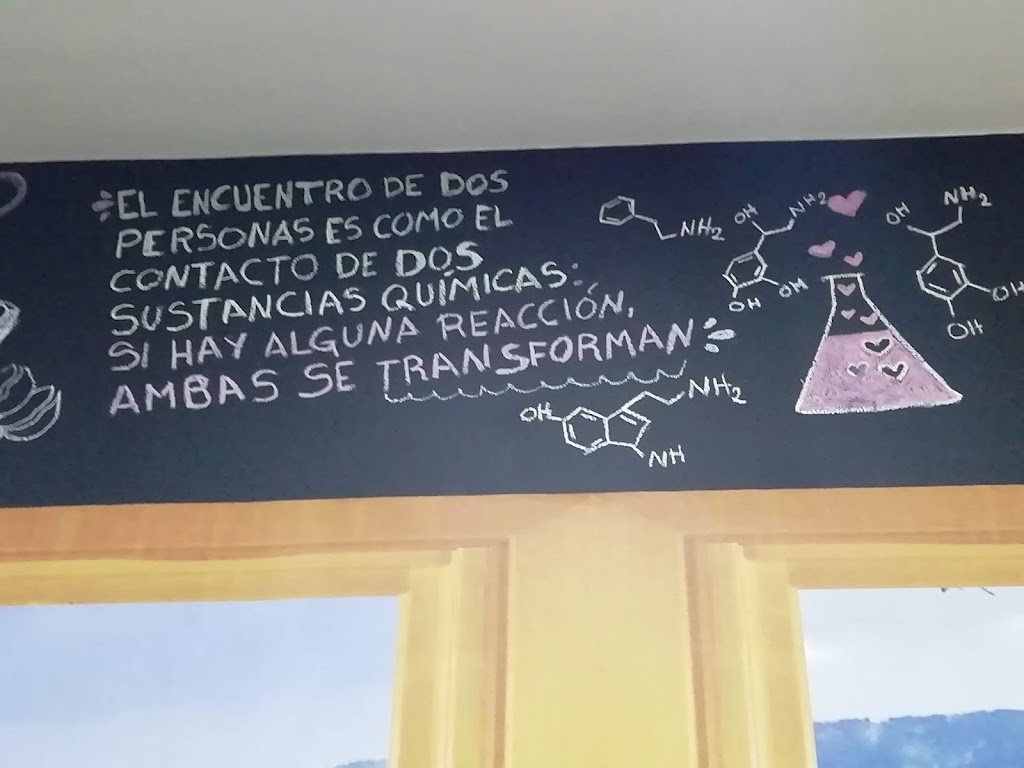 EL ENCUENTRO DE DOS
PERSONAS ES COMO EL
CONTACTO DE DOS
SUSTANCIAS QUÍMICAS:
SI HAY ALGUNA REACCIÓN,
AMBAS SE TRANSFORMAN
NH2
OH
NH2
OH
OH
OH
NH2
OH
OH
OH
NH2
NH